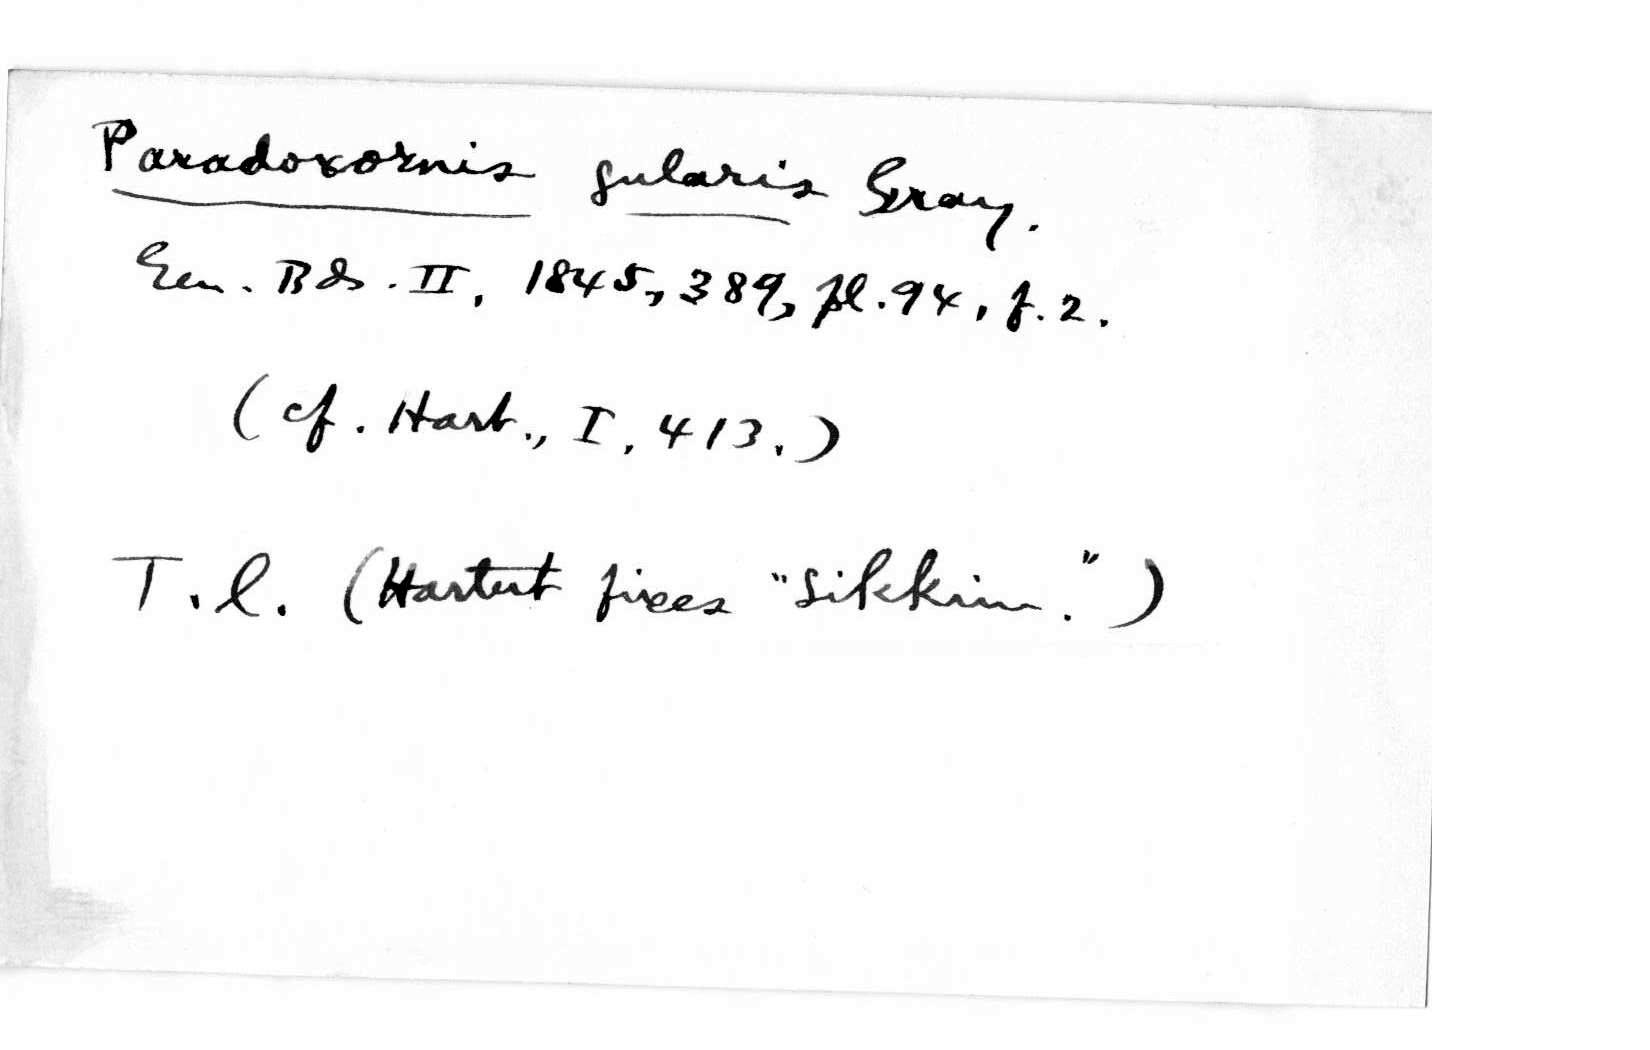 Paradoxornis gularis Gray.
Gen. Bds. II, 1845, 389, pl. 94, f. 2.
(cf. Hart., I, 413.)
T. l. (Hartert fixes "Sikkim.")